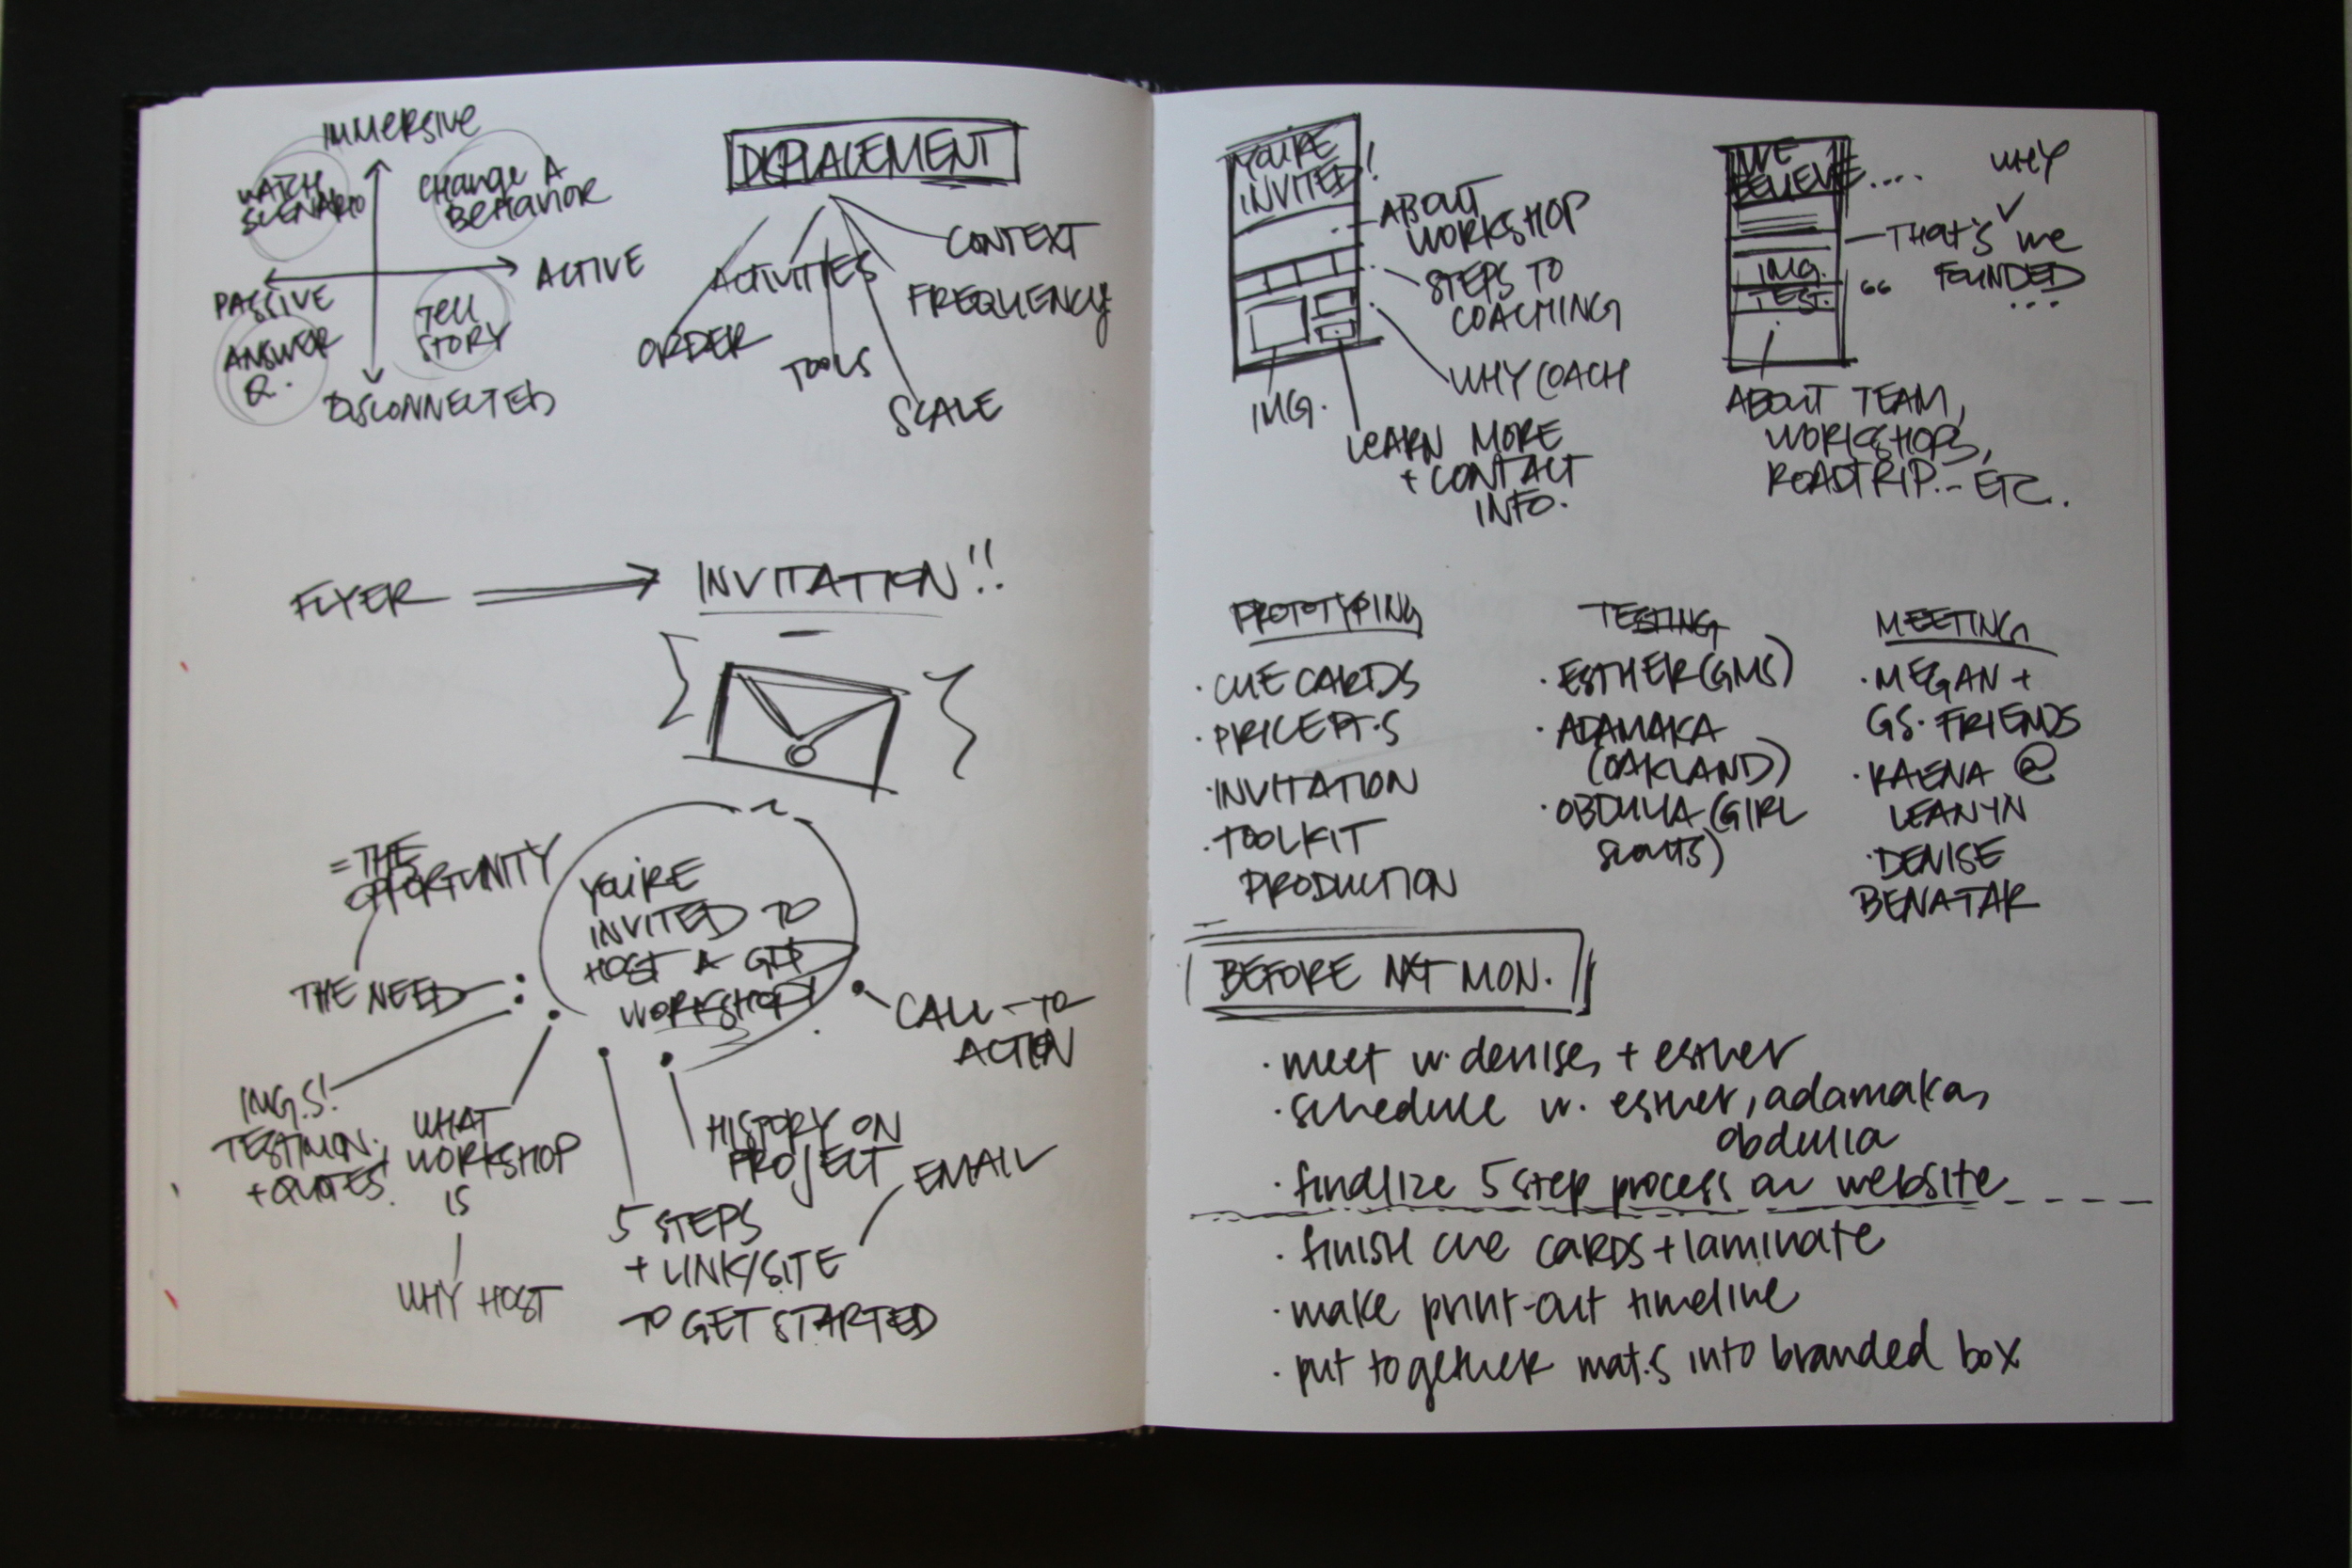 IMMERSIVE
WATCH
SCENARIO
CHANGE A
BEHAVIOR
PASSIVE
ACTIVE
ANSWER
Q.
TELL
STORY
DISCONNECTED
DISPLACEMENT
ORDER
ACTIVITIES
TOOLS
SCALE
FREQUENCY
CONTEXT
FLYER
INVITATION!!
YOU'RE
INVITED TO
HOST A
WORKSHOP!
= THE
OPPORTUNITY
THE NEED
IMG.S!
TESTIMON.
+ QUOTES!
WHAT
WORKSHOP
IS
WHY HOST
5 STEPS
+ LINK/SITE
TO GET STARTED
EMAIL
HISTORY ON
PROJECT
CALL-TO-
ACTION
YOU'RE
INVITED!
ABOUT
WORKSHOP
STEPS TO
COACHING
WHY COACH
IMG.
LEARN MORE
+ CONTACT
INFO.
WE
BELIEVE....
WHY
THAT'S WE
FOUNDED
...
IMG.
TEST.
“
ABOUT TEAM,
WORKSHOPS,
ROADTRIP... ETC.
PROTOTYPING
· CUE CARDS
· PRICEPT.S
· INVITATION
· TOOLKIT
PRODUCTION
TESTING
· ESTHER (GMS)
· ADAMAKA
(OAKLAND)
· OBDULIA (GIRL
SCOUTS)
MEETING
· MEGAN +
GS. FRIENDS
· RAENA @
LEANYN
· DENISE
BENATAR
BEFORE NXT MON.
· meet w. denise, + esther
· schedule w. esther, adamaka,
obdulia
· finalize 5 step process on website
· finish cue cards + laminate
· make print-out timeline
· put together mat.s into branded box